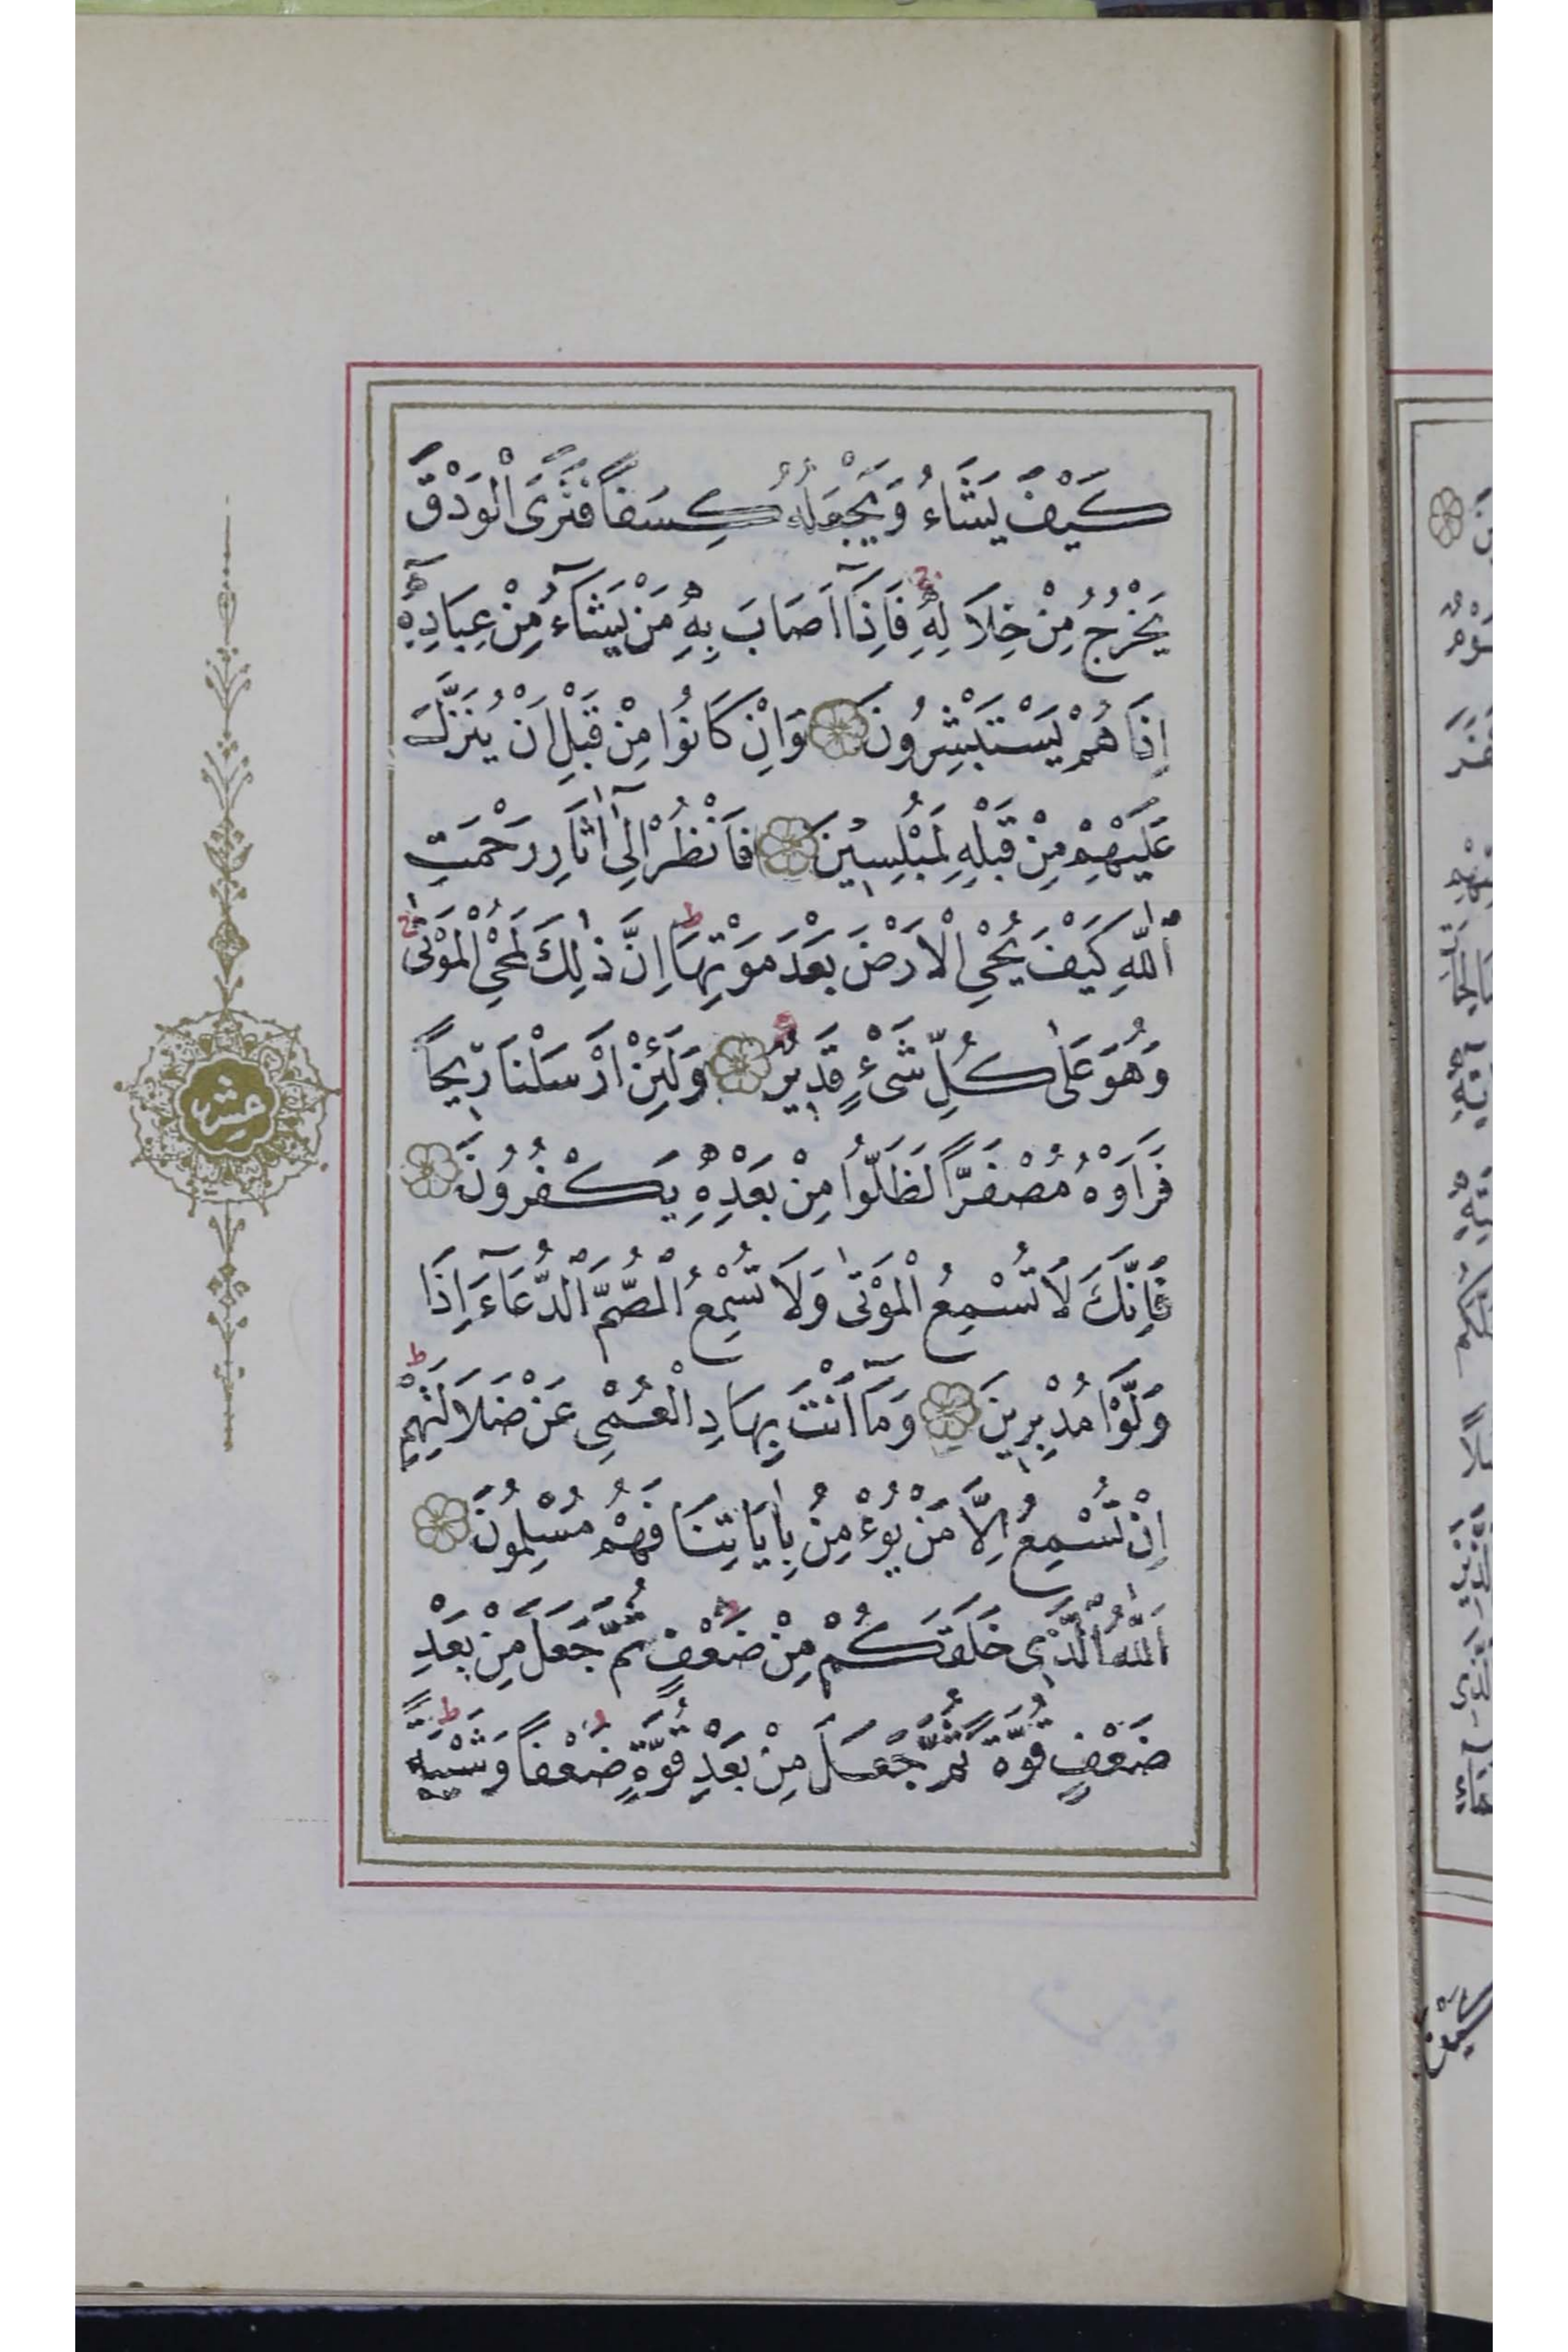 كَيْفَ يَشَاءُ وَيَجْعَلُهُ كِسَفاً فَتَرَى الْوَدْقَ
يَخْرُجُ مِنْ خِلَالِهِ فَاِذَٓا اَصَابَ بِهِ مَنْ يَشَٓاءُ مِنْ عِبَادِهِٓ
اِذَا هُمْ يَسْتَبْشِرُونَ وَاِنْ كَانُوا مِنْ قَبْلِ اَنْ يُنَزَّلَ
عَلَيْهِمْ مِنْ قَبْلِهِ لَمُبْلِسِينَ فَانْظُرْ اِلٰٓى اٰثَارِ رَحْمَتِ
اللّٰهِ كَيْفَ يُحْيِ الْاَرْضَ بَعْدَ مَوْتِهَا اِنَّ ذٰلِكَ لَمُحْيِ الْمَوْتٰى
وَهُوَ عَلٰى كُلِّ شَىْءٍ قَدِيرٌ وَلَئِنْ اَرْسَلْنَا رِيحاً
فَرَاَوْهُ مُصْفَرًّا لَظَلُّوا مِنْ بَعْدِهِ يَكْفُرُونَ
فَاِنَّكَ لَا تُسْمِعُ الْمَوْتٰى وَلَا تُسْمِعُ الصُّمَّ الدُّعَٓاءَ اِذَا
وَلَّوْا مُدْبِرِينَ وَمَٓا اَنْتَ بِهَادِ الْعُمْىِ عَنْ ضَلَالَتِهِمْ
اِنْ تُسْمِعُ اِلَّا مَنْ يُؤْمِنُ بِاٰيَاتِنَا فَهُمْ مُسْلِمُونَ
اَللّٰهُ الَّذِى خَلَقَكُمْ مِنْ ضَعْفٍ ثُمَّ جَعَلَ مِنْ بَعْدِ
ضَعْفٍ قُوَّةً ثُمَّ جَعَلَ مِنْ بَعْدِ قُوَّةٍ ضَعْفاً وَشَيْبَةً
عشر